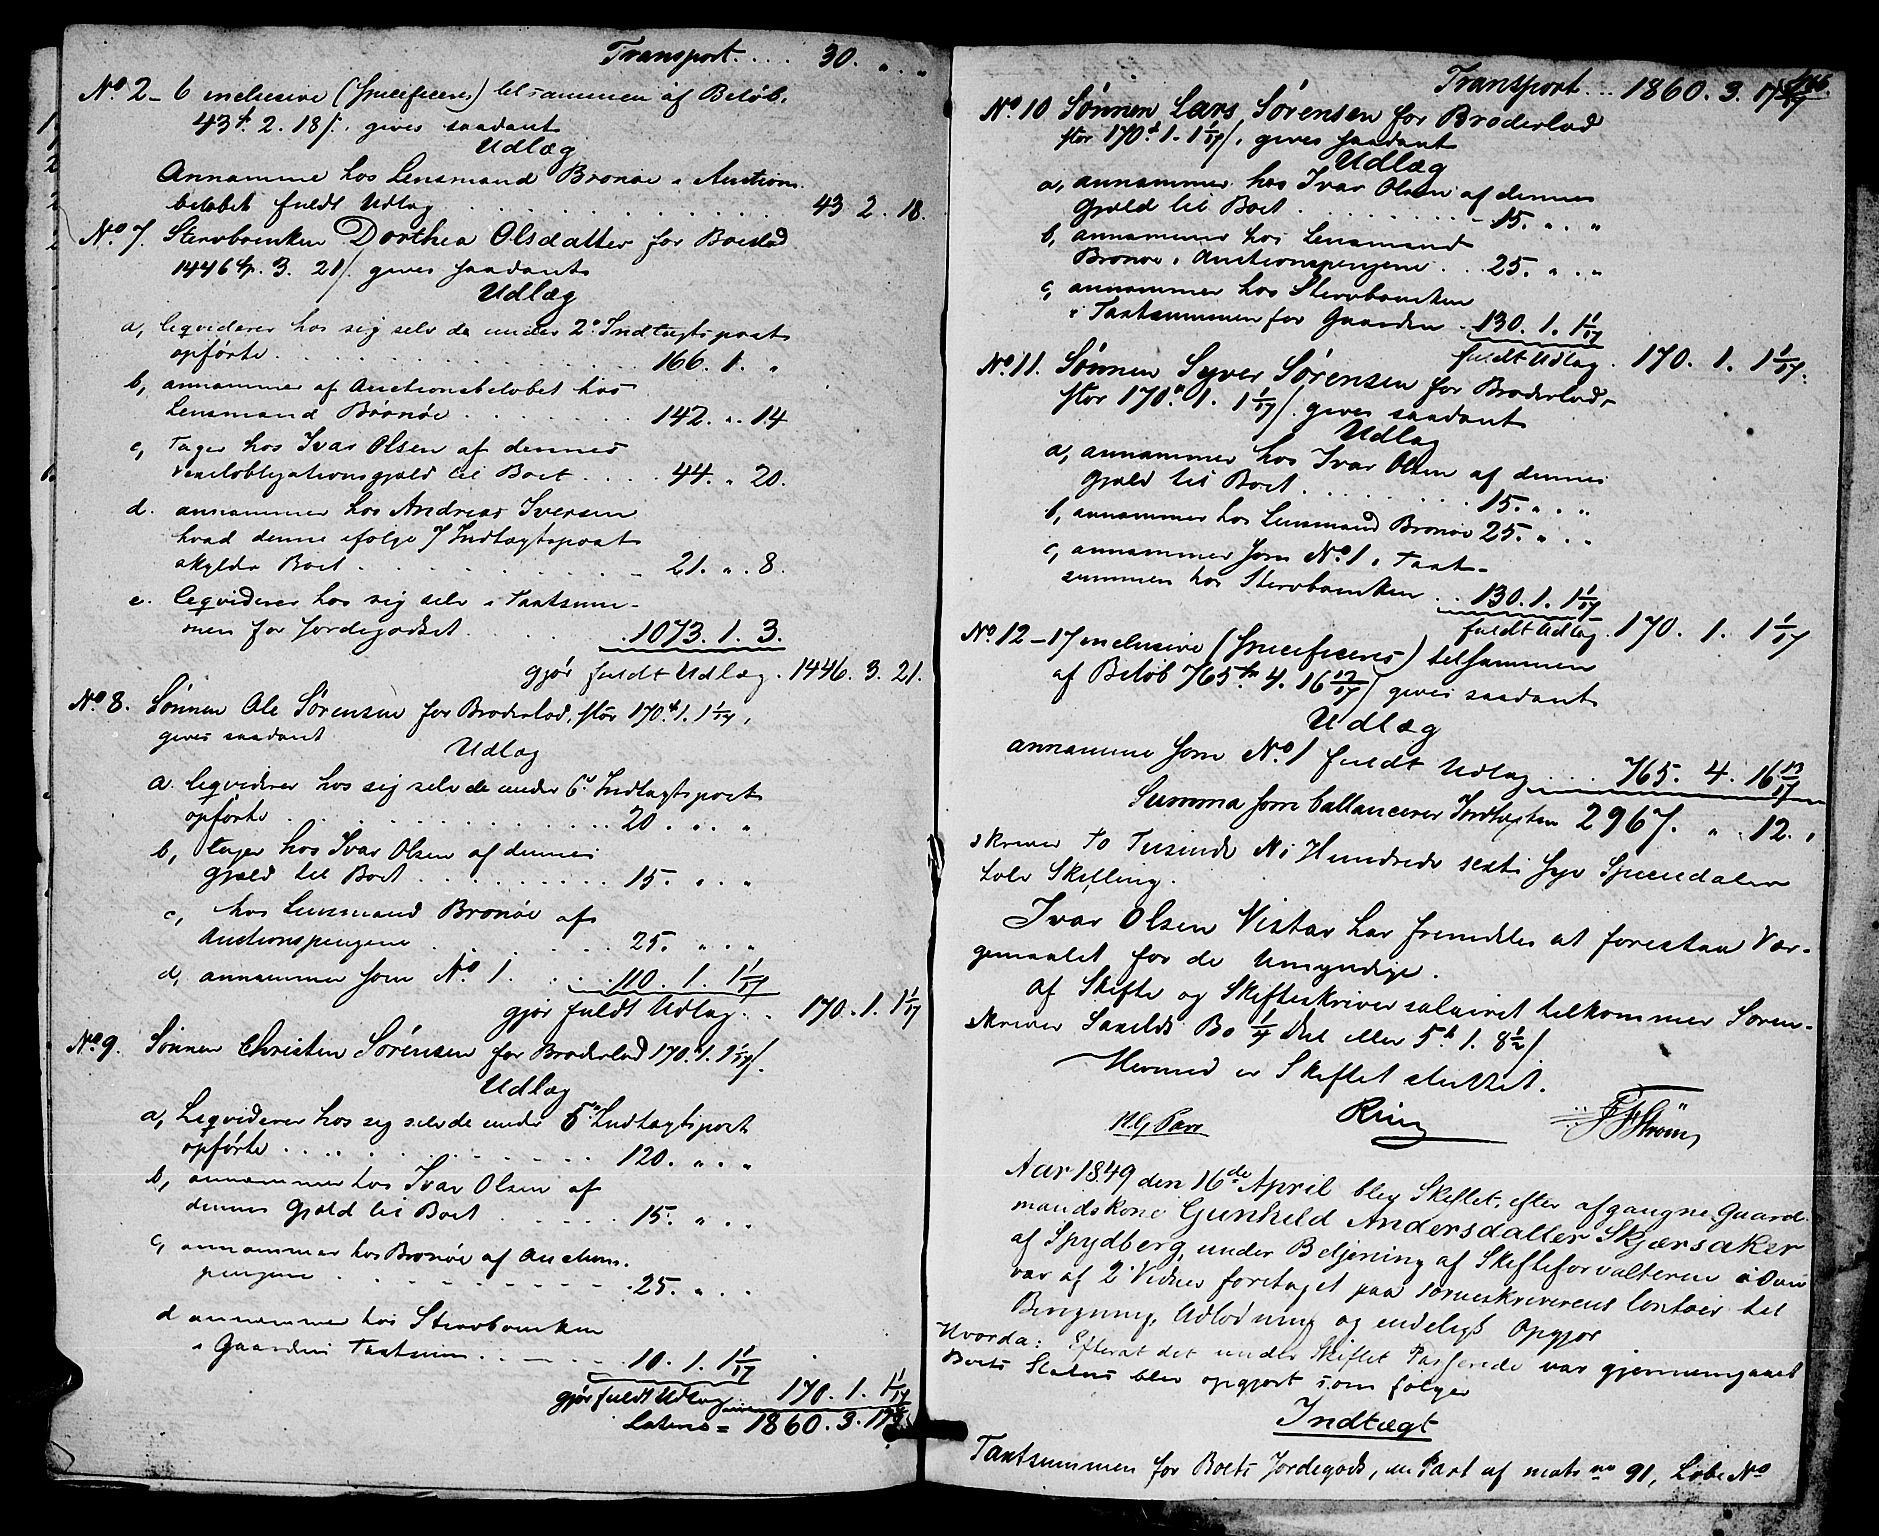 Transport.... 30. „ „
No 2 - 6 inclusive (Specificeres) tilsammen af Beløb.
43 2. 18 ß. gives saadant
Udlæg
Annamme hos Lensmand Bronøe i Auctions
beløbet fuldt Udlæg . . . . . . 43 2. 18.
No 7. Stervboenken Dorthea Olsdatter for Boeslod
1446 Sp. 3. 21 ß. gives saadant
Udlæg
a, liqviderer hos sig selv de under 2 Indtægtspost
opførte . . . . 166. 1. „
b, annammer af Auctionsbeløbet hos
Lensmand Brønøe . . . . 142. „ 14
c, Tager hos Ivar Olsen af dennes
Vexelobligationsgjæld til Boet . . . . 44. „ 20.
d. annammer hos Andreas Iversen
hvad denne ifølge 7 Indtægtspost
skylder Boet . . . . 21. „ 8.
e. liqviderer hos sig selv i Taxtsum-
men for Jordegodset . . . . 1073. 1. 3.
gjør fuldt Udlæg . 1446. 3. 21.
No 8. Sønnen Ole Sørensen for Broderlod, stor 170. 1. 1 1/17,
gives saadant
Udlæg
a. liqviderer hos sig selv de under 6 Indtægtspost
opførte . . . . 20. „ „
b, tager hos Ivar Olsen af dennes
Gjæld til Boet . . . . 15. „ „
c, hos Lensmand Bronøe af
Auctionspengene . . . . 25. „ „
d, annammer som No 1. . . . 110. 1. 1 1/17
gjør fuldt Udlæg . . 170. 1. 1 1/17
No 9. Sønnen Christen Sørensen for Broderlod 170. 1. 1 1/17 ß.
Udlæg
a, Liqviderer hos sig selv de under 5 Indtægtspost
opførte . . . . 120. „ „
b, annammer hos Ivar Olsen af
dennes Gjæld til Boet . . . . 15. „ „
c, annammer hos Bronøe af Auctions.
pengene . . . . 25. „ „
d annammer hos Stervboenken
i Gaardens Taxtsum . . . . 10. 1. 1 1/17
gjør fuldt Udlæg 170. 1. 1 1/17
Lateris = 1860. 3.
Transport... 1860. 3.
No 10 Sønnen Lars Sørensen for Broderlod
stor 170. 1. 1 1/17 ß. gives saadant
Udlæg
a, annammer hos Ivar Olsen af dennes
Gjæld til Boet . . . . 15. „ „
b, annammer hos Lensmand
Bronøe i Auctionspengene . . . 25. „ „
c, annammer hos Stervboenken
i Taxtsummen for Gaarden . 130. 1. 1 1/17
fuldt Udlæg . 170. 1. 1 1/17.
No 11. Sønnen Syver Sørensen for Broderlod,
stor 170. 1. 1 1/17 ß. gives saadant
Udlæg
a, annammer hos Ivar Olsen af dennes
Gjæld til Boet . . . . 15. „ „
b, annammer hos Lensmand Bronøe 25. „ „
c, annammer som No 1 i Taxt-
summen hos Stervboenken . . 130. 1. 1 1/17
fuldt Udlæg . 170. 1. 1 1/17
No 12 - 17 inclusive (Specificeres) tilsammen
af Beløb 765. 4. 16 13/17 ß gives saadant
Udlæg
annamme som No 1 fuldt Udlæg . . . 765. 4. 16 13/17
Summa som ballancerer Indtægten 2967. „ 12.
skriver To Tusinde Ni Hundrede sexti syv Speciedaler
tolv Skilling.
Ivar Olsen Vistar har fremdeles at forestaa Vær-
gemaalet for de Umyndige.
Af Skifte og Skifteskriversalairet tilkommer Soren-
skriver Saxilds Bo 1/4 Deel eller 5. 1. 8 1/2 ß
Hermed er Skiftet sluttet.
Ring
Strøm
Aar 1849 den 16de April blev Skiftet, efter afgangne Gaard
mandskone Gunhild Andersdatter Skjærsaker
af Spydberg, under Betjening af Skifteforvalteren i Over
vær af 2 Vidner foretaget paa Sorenskriverens Contoir til
Beregning, Udlodning og endeligt Opgjør
Hvorda: Efterat det under Skiftet Passerede var gjennemgaaet
Boets Status blev opgjort som følger
Indtægt
Taxtsummen for Boets Jordegods, en Part af mats no 91, Løbe No